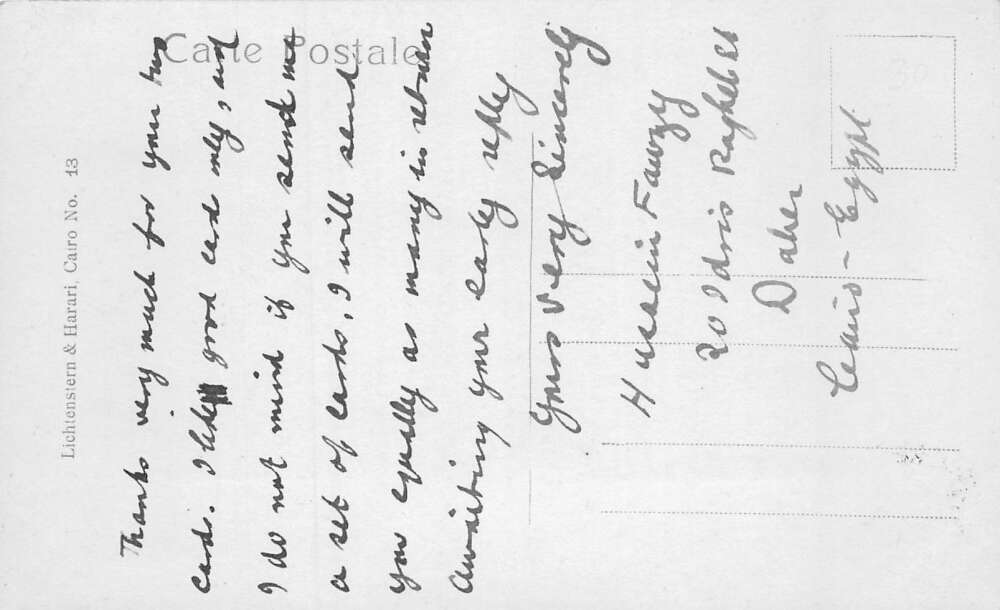 Carte Postale
Lichtenstern & Harari, Cairo No. 13
Thanks very much for your two
cards. I like good card only, and
I do not mind if you send me
a set of cards, I will send
you equally as many in return
Awaiting your early reply
Yours very sincerely
Hussein Fawzy
20 Idris Ragheb St
Daher
Cairo - Egypt.